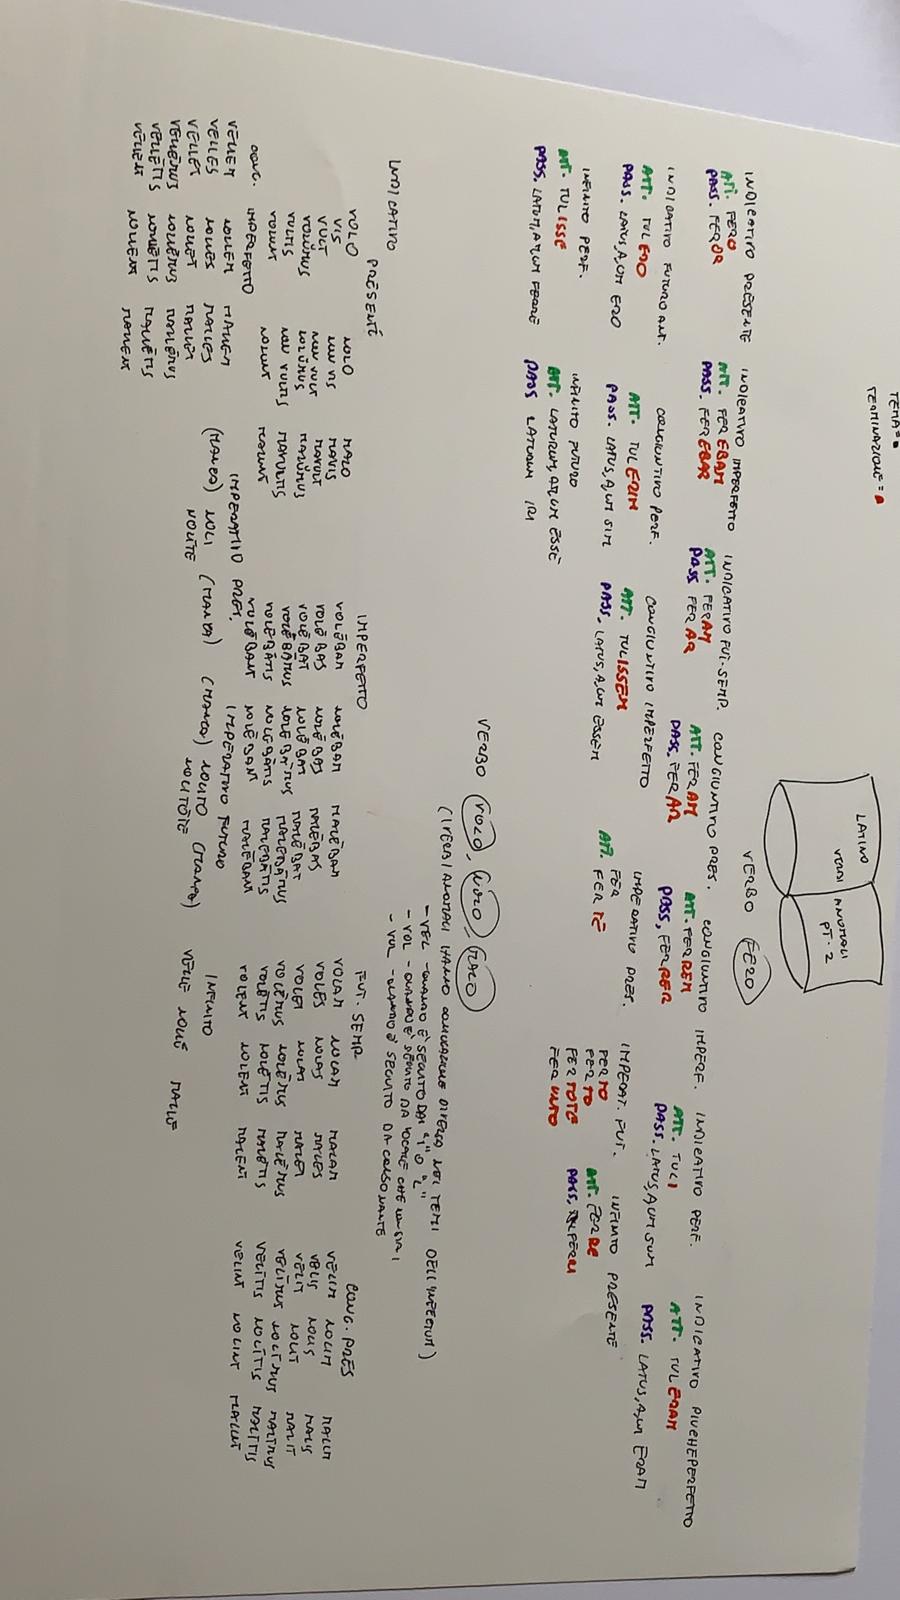 TEMA=
TERMINAZIONE=
LATINO
VERBI ANOMALI
PT. 2
VERBO FERO
INDICATIVO PRESENTE
ATT. FERO
PASS. FEROR
INDICATIVO IMPERFETTO
ATT. FEREBAM
PASS. FEREBAR
INDICATIVO FUT. SEMP.
ATT. FERAM
PASS FERAR
CONGIUNTIVO PRES.
ATT. FERAM
PASS. FERAR
CONGIUNTIVO IMPERF.
ATT. FERREM
PASS, FERRER
INDICATIVO PERF.
ATT. TULI
PASS. LATUS,A,UM SUM
INDICATIVO PIUCHEPERFETTO
ATT. TULERAM
PASS. LATUS,A,UM ERAM
INDICATIVO FUTURO ANT.
ATT. TULERO
PASS. LATUS,A,UM ERO
CONGIUNTIVO PERF.
ATT. TULERIM
PASS. LATUS,A,UM SIM
CONGIUNTIVO IMPERFETTO
ATT. TULISSEM
PASS. LATUS,A,UM ESSEM
IMPERATIVO PRES.
ATT. FER
FERTE
IMPERAT. FUT.
FERTO
FERTO
FERTOTE
FERUNTO
INFINITO PRESENTE
ATT. FERRE
PASS. FERRI
INFINITO PERF.
ATT. TULISSE
PASS. LATUM,A,UM
INFINITO FUTURO
ATT. LATURUM,A,UM ESSE
PASS LATUUM IRI
VERBO VOLO, NOLO, MALO
(I VERBI ANOMALI HANNO DIVERSA NEI TEMI DELL'INFECTUM)
- VEL - QUANDO È SEGUITO DA "I" O "L"
- VOL - QUANDO È SEGUITO DA VOCALE CHE NON SIA I
- VUL - QUANDO È SEGUITO DA CONSONANTE
INDICATIVO
PRESENTE
VOLO NOLO MALO
VIS NON VIS MAVIS
VULT NON VULT MAVULT
VOLUMUS NOLŬMUS MALŬMUS
VULTIS NON VULTIS MAVULTIS
VOLUNT NOLUNT MALUNT
IMPERFETTO
VOLĒBAM NOLĒBAM MALĒBAM
VOLĒBAS NOLĒBAS MALĒBAS
VOLĒBAT NOLĒBAT MALĒBAT
VOLEBĀMUS NOLEBĀMUS MALEBĀMUS
VOLEBĀTIS NOLEBĀTIS MALEBĀTIS
VOLĒBANT NOLĒBANT MALĒBANT
FUT. SEMP.
VOLAM NOLAM MALAM
VOLES NOLAS MALES
VOLET NOLAT MALET
VOLĒMUS NOLĒMUS MALĒMUS
VOLĒTIS NOLĒTIS MALĒTIS
VOLENT NOLENT MALENT
CONG. PRES
VELIM NOLIM MALIM
VELIS NOLIS MALIS
VELIT NOLIT MALIT
VELĪMUS NOLĪMUS MALĪMUS
VELĪTIS NOLĪTIS MALĪTIS
VELINT NOLINT MALINT
CONG. IMPERFETTO
VELLEM NOLLEM MALLEM
VELLES NOLLES MALLES
VELLET NOLLET MALLET
VELLĒMUS NOLLĒMUS MALLĒMUS
VELLĒTIS NOLLĒTIS MALLĒTIS
VELLENT NOLLENT MALLENT
IMPERATIVO PRES.
(MANCA) NOLI (MANCA)
NOLĪTE
IMPERATIVO FUTURO
(MANCA) NOLITO (MANCA)
NOLITŌTE
INFINITO
VELLE NOLLE MALLE